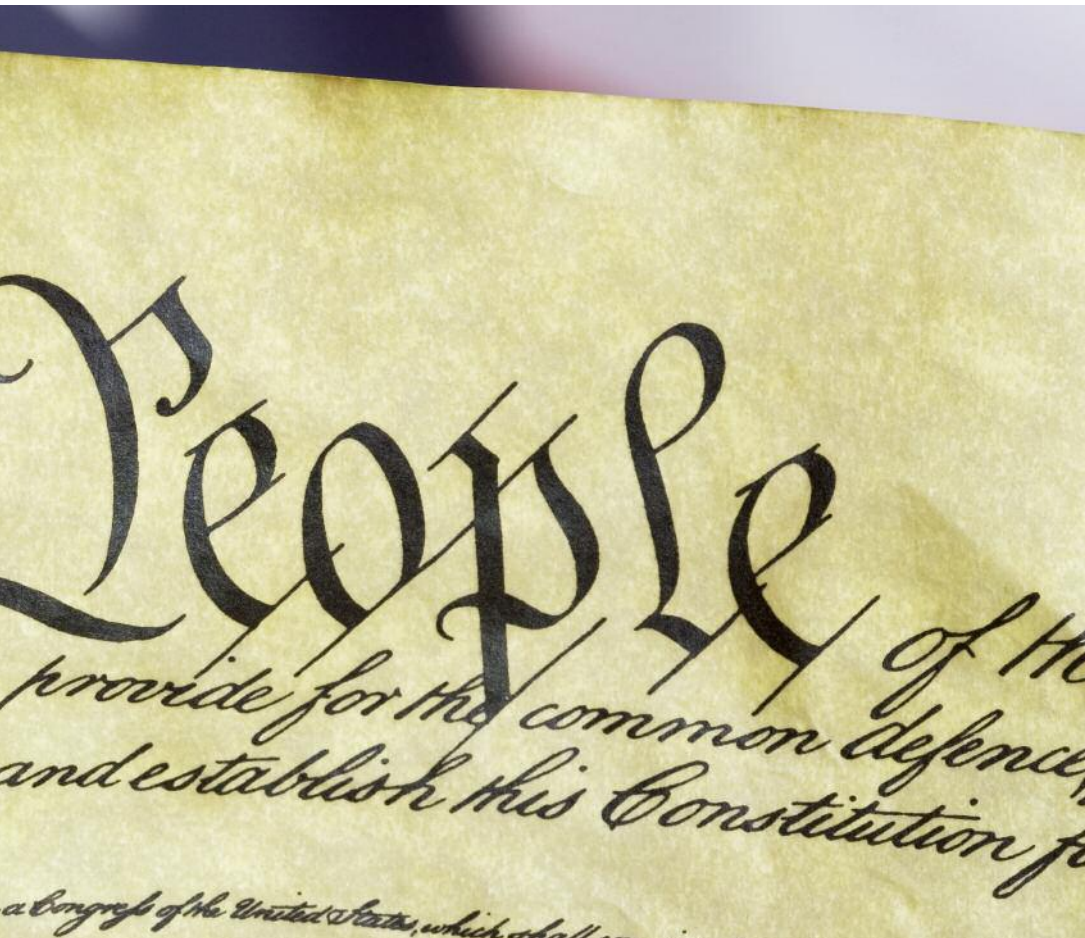 People of th
provide for the common defence,
and establish this Constitution fo
a Congreſs of the United States, which shall